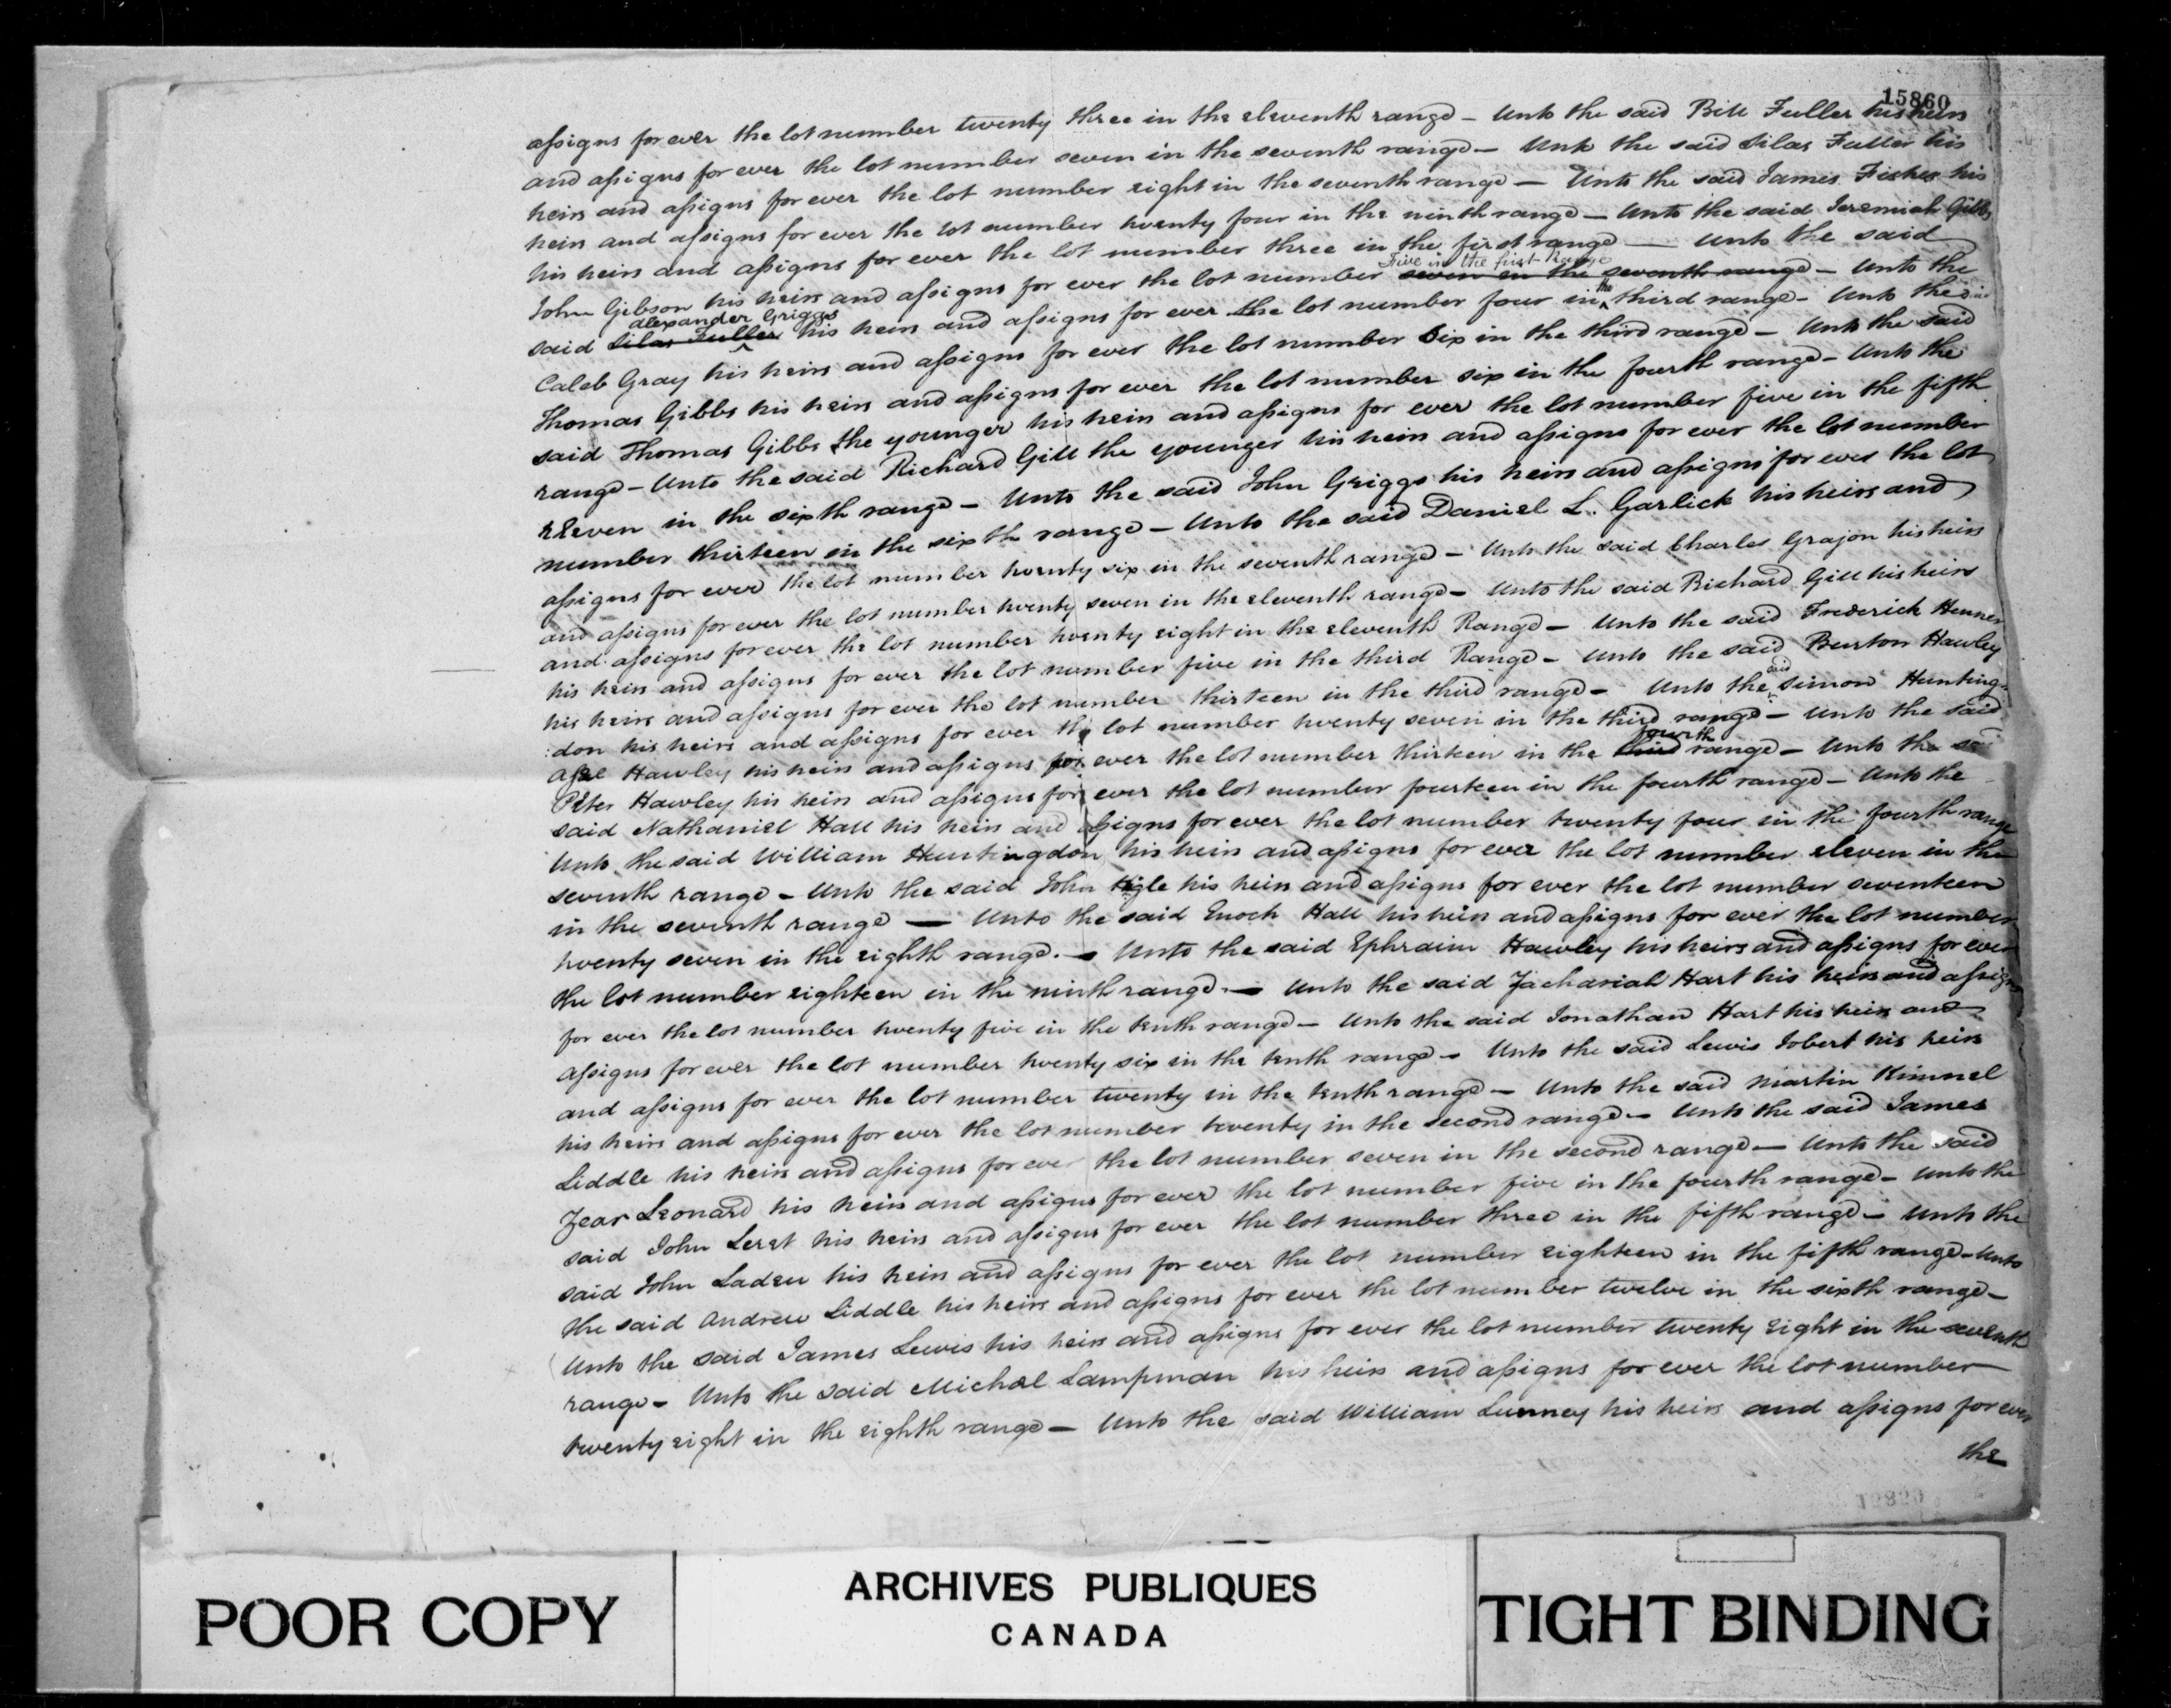 15860
assigns for ever the lot number twenty three in the eleventh range - Unto the said Bill Fuller his heirs
and assigns for ever the lot number seven in the seventh range - Unto the said Silas Fuller his
heirs and assigns for ever the lot number eight in the seventh range - Unto the said James Fisher his
heirs and assigns for ever the lot number twenty four in the ninth range - Unto the said Jeremiah Gibbs
his heirs and assigns for ever the lot number three in the first range - Unto the said
Five in the first Range
John Gibson his heirs and assigns for ever the lot number seven in the seventh range - Unto the
alexander Griggs
said Silas Fuller his heirs and assigns for ever the lot number four in the third range - Unto the
Caleb Gray his heirs and assigns for ever the lot number Six in the third range - Unto the said
Thomas Gibbs his heirs and assigns for ever the lot number six in the fourth range - Unto the
said Thomas Gibbs the younger his heirs and assigns for ever the lot number five in the fifth
range - Unto the said Richard Gill the younger his heirs and assigns for ever the lot number
eleven in the sixth range - Unto the said John Griggs his heirs and assigns for ever the lot
number thirteen in the sixth range - Unto the said Daniel L. Garlick his heirs and
assigns for ever the lot number twenty six in the seventh range - Unto the said Charles Grajon his heirs
and assigns for ever the lot number twenty seven in the eleventh range - Unto the said Richard Gill his heirs
and assigns for ever the lot number twenty eight in the eleventh Range - Unto the said Frederick Henner
his heirs and assigns for ever the lot number five in the third Range - Unto the said Burton Hawley
his heirs and assigns for ever the lot number thirteen in the third range - Unto the said Simon Hunting
:don his heirs and assigns for ever the lot number twenty seven in the third range - Unto the said
fourth
Hawley his heirs and assigns for ever the lot number thirteen in the third range - Unto the said
Peter Hawley his heirs and assigns for ever the lot number fourteen in the fourth range - Unto the
said Nathaniel Hall his heirs and assigns for ever the lot number twenty four in the fourth range
Unto the said William Huntingdon his heirs and assigns for ever the lot number eleven in the
seventh range - Unto the said John his heirs and assigns for ever the lot number seventeen
in the seventh range - Unto the said Enoch Hall his heirs and assigns for ever the lot number
twenty seven in the eighth range. - Unto the said Ephraim Hawley his heirs and assigns for ever
the lot number eighteen in the ninth range. - Unto the said Zachariah Hart his heirs and assigns
for ever the lot number twenty five in the tenth range - Unto the said Jonathan Hart his heirs and
assigns for ever the lot number twenty six in the tenth range - Unto the said Lewis Jobert his heirs
and assigns for ever the lot number twenty in the tenth range - Unto the said Martin Kimmel
his heirs and assigns for ever the lot number twenty in the second range - Unto the said James
Liddle his heirs and assigns for ever the lot number seven in the second range - Unto the said
Zear Leonard his heirs and assigns for ever the lot number five in the fourth range - Unto the
said John Lerst his heirs and assigns for ever the lot number three in the fifth range - Unto the
said John Ladeu his heirs and assigns for ever the lot number eighteen in the fifth range - Unto
the said Andrew Liddle his heirs and assigns for ever the lot number twelve in the sixth range -
Unto the said James Lewis his heirs and assigns for ever the lot number twenty eight in the seventh
range - Unto the said Michael Lampman his heirs and assigns for ever the lot number
twenty eight in the eighth range - Unto the said William Lunney his heirs and assigns for ever
the
POOR COPY
ARCHIVES PUBLIQUES
CANADA
TIGHT BINDING